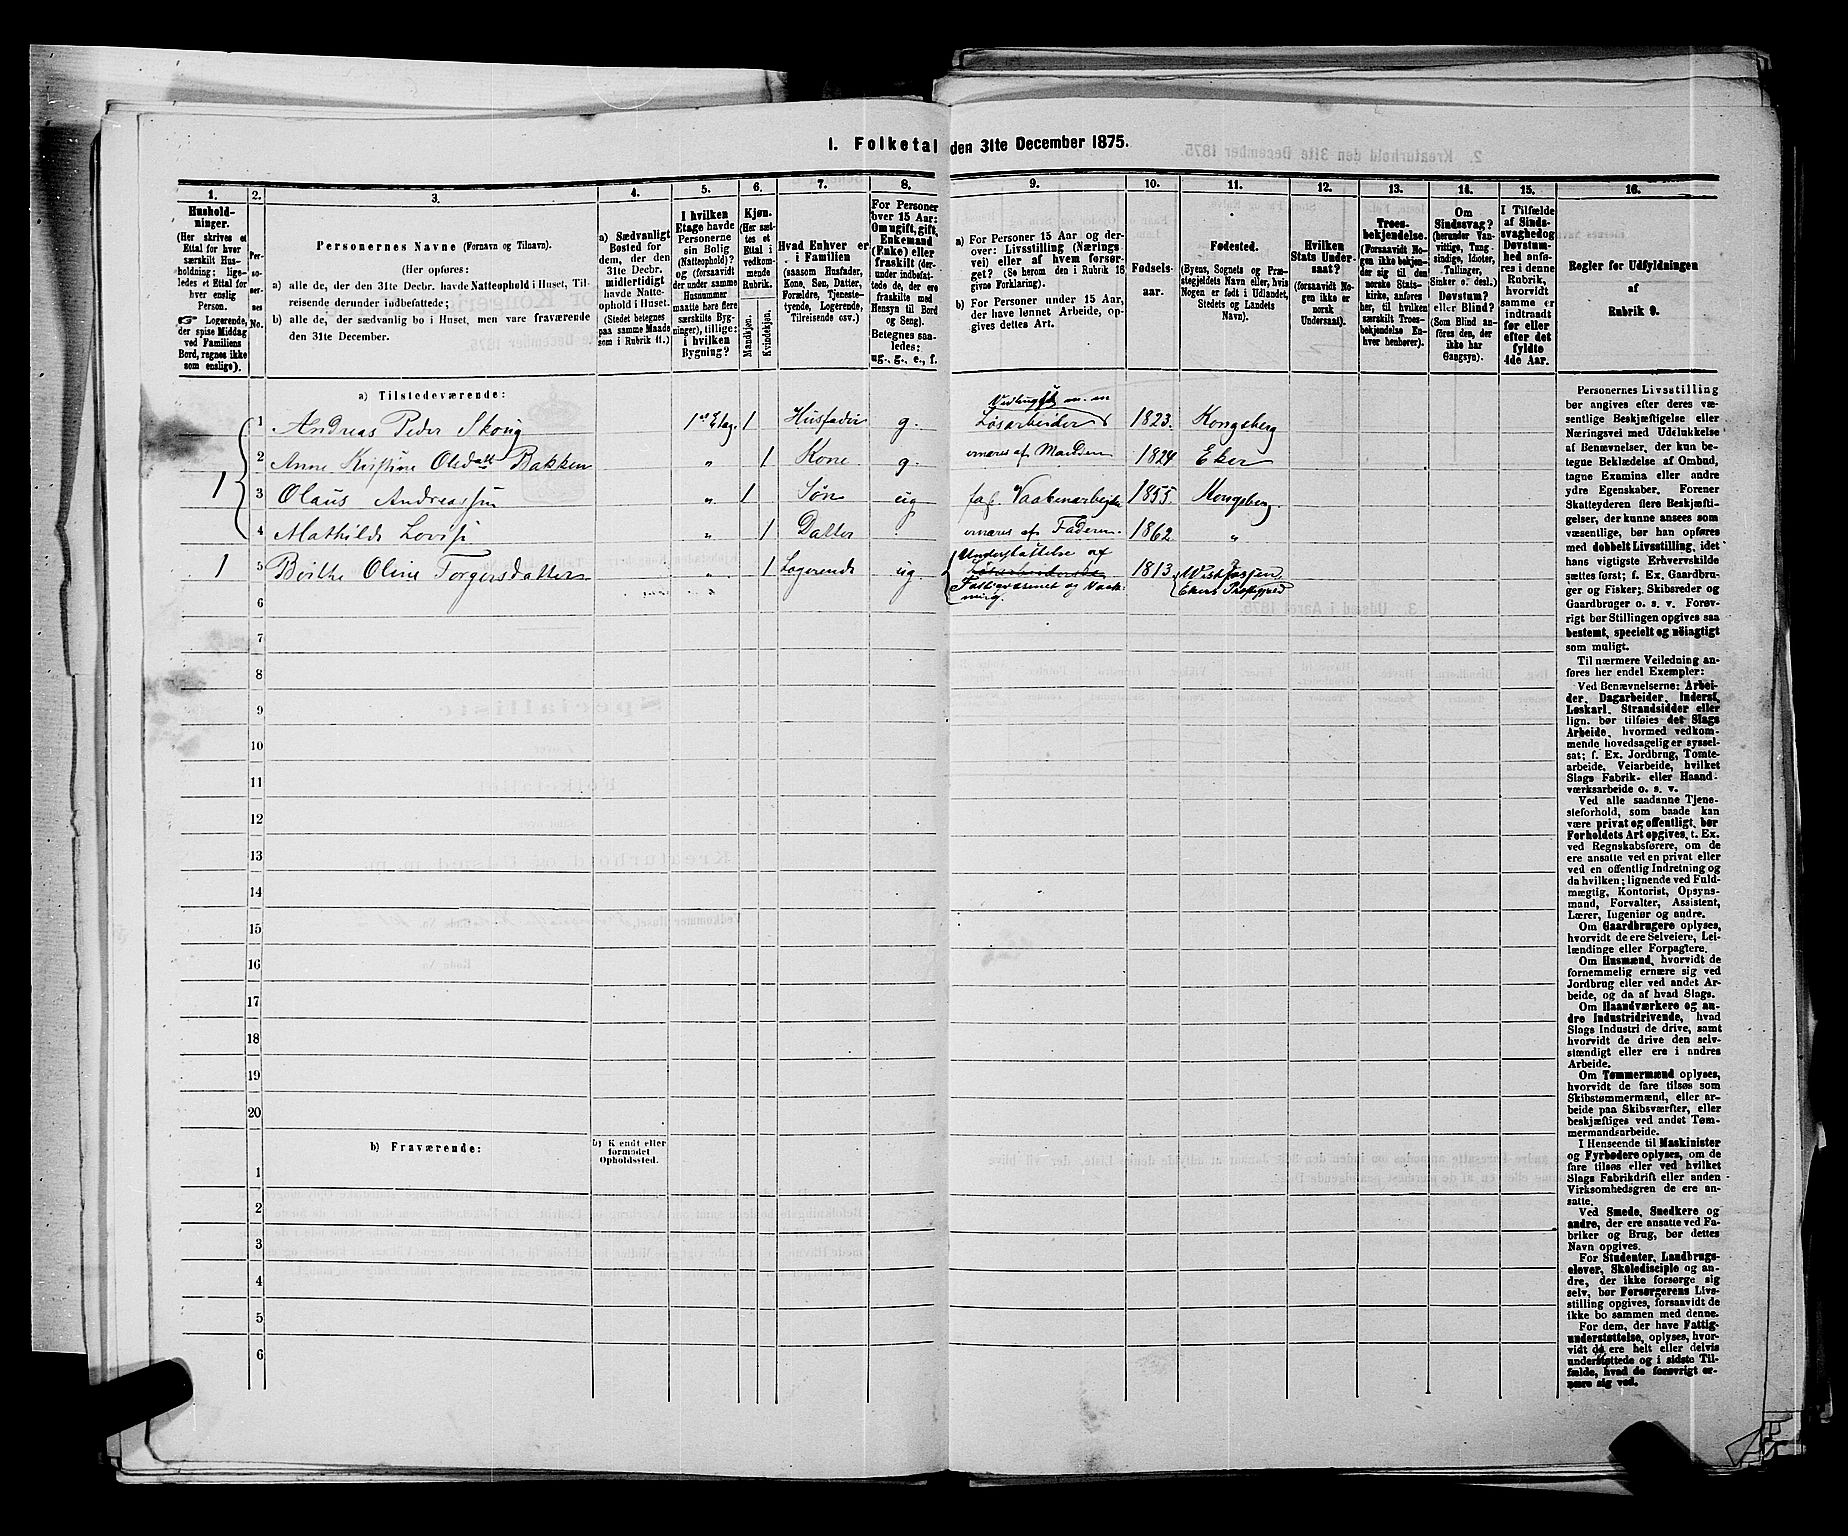 1. Folketal den 31te December 1875.
1.
2.
3.
4.
5.
6.
7.
8.
9.
10.
11.
12.
13.
14.
15.
16.
Hushold-
ninger.
(Her skrives et
Ettal for hver
særskilt Hus-
holdning; lige-
ledes et Ettal for
hver enslig
Person.
☞ Logerende,
der spise Middag
ved Familiens
Bord, regnes ikke
som enslige).
Per-
so-
ner-
nes
No.
Personernes Navne (Fornavn og Tilnavn).
(Her opføres:
a) alle de, der den 31te Decbr. havde Natteophold i Huset, Til-
reisende derunder indbefattede;
b) alle de, der sædvanlig bo i Huset, men vare fraværende
den 31te December.
a) Sædvanligt
Bosted for
dem, der den
31te Decbr.
midlertidigt
havde Natte-
ophold i Huset.
(Stedet betegnes
paa samme Maade
som i Rubrik 11.)
I hvilken
Etage havde
Personerne
sin Bolig
(Natteophold)?
og (forsaavidt
der under samme
Husnummer
maatte høre flere
særskilte Byg-
ninger), tillige:
i hvilken
Bygning?
Kjøn.
(Her sæt-
tes et
Ettal i
vedkom-
mende
Rubrik.
Mandkjøn.
Kvindekjøn.
Hvad Enhver er
i Familien
(saasom Husfader,
Kone, Søn, Datter,
Forældre, Tjeneste-
tyende, Logerende,
Tilreisende osv.)
For Personer
over 15 Aar:
Om ugift, gift,
Enkemand
(Enke) eller
fraskilt (der-
under indbefat-
tede de, der ere
fraskilte med
Hensyn til Bord
og Seng).
Betegnes saa-
ledes:
ug., g., e., f.
a) For Personer 15 Aar og der-
over: Livsstilling (Nærings
vei) eller af hvem forsør-
get? (Se herom den i Rubrik 16
givne Forklaring).
b) For Personer under 15 Aar,
der have lønnet Arbeide, op-
gives dettes Art.
Fødsels-
aar.
Fødested.
(Byens, Sognets og Præ-
stegjeldets Navn eller, hvis
Nogen er født i Udlandet,
Stedets og Landets
Navn).
Hvilken
Stats Under-
saat?
(forsaavidt No-
gen ikke er
norsk
Undersaat).
Troes-
bekjendelse.
(Forsaavidt No-
gen ikke bekjen-
der sig til den
norske Stats-
kirke, anføres
her, til hvilken
særskilt Troes-
bekjendelse En-
hver henhører).
Om
Sindssvag?
(herunder Van-
vittige, Tung-
sindige, Idioter,
Tullinger,
Sinker o. desl.)
Døvstum?
eller Blind?
(Som Blind an-
føres den, der
ikke har
Gangsyn).
I Tilfælde
af Sinds-
svaghed og
Døvstum-
hed anfø-
res i denne
Rubrik,
hvorvidt
samme er
indtraadt
før eller
efter det
fyldte
4de Aar.
Regler for Udfyldningen
af
Rubrik 9.
a) Tilstedeværende:
1 Andreas Peder Skoug 1ste Etag. 1 Husfader g. Vedhugst m. m Løsarbeider 1823. Kongsberg
2 Anne Kristine Olsdatt Bakken " 1 Kone g. ernæres af Manden 1824 Eker
1 3 Olaus Andreassen " 1 Søn ug fat. Vaabenarbeider 1855. Kongsberg
4 Mathilde Lovise " 1 Datter ernæres af Faderen 1862 "
1 5 Berthe Oline Torgersdatter " 1 Logerende ug Understøttelse af Fattigvæsenet og 1813. Vestfossen Ekers Præstegjeld
6
7
8
9
10
11
12
13
14
15
16
17
18
19
20
b) Fraværende:
b) Kjendt eller
formodet
Opholdssted.
1
2
3
4
5
6
Personernes Livsstilling
bør angives efter deres væ-
sentlige Beskjæftigelse eller
Næringsvei med Udelukkelse
af Benævnelser, der kun be-
tegne Beklædelse af Ombud,
tagne Examina eller andre
ydre Egenskaber. Forener
Skatteyderen flere Beskjæfti-
gelser, der kunne ansees som
væsentlige, bør han opføres
med dobbelt Livsstilling, idet
hans vigtigste Erhvervskilde
sættes først; f. Ex. Gaardbru-
ger og Fisker; Skibsreder og
Gaardbruger o. s. v. Forøv-
rigt bør Stillingen opgives saa
bestemt, specielt og nøiagtigt
som muligt.
Til nærmere Veiledning an-
føres her endel Exempler:
Ved Benævnelserne: Arbei-
der, Dagarbeider, Inderst,
Løskarl, Strandsidder eller
lign. bør tilføies det Slags
Arbeide, hvormed vedkom-
mende hovedsagelig er syssel-
sat; f. Ex. Jordbrug, Tomte-
arbeide, Veiarbeide, hvilket
Slags Fabrik- eller Haand-
værksarbeide o. s. v.
Ved alle saadanne Tjene-
steforhold, som baade kan
være privat og offentligt, bør
Forholdets Art opgives, t. Ex.
ved Regnskabsførere, om de
ere ansatte ved en privat eller
ved en offentlig Indretning og
da hvilken; lignende ved Fuld-
mægtig, Kontorist, Opsyns-
mand, Forvalter, Assistent,
Lærer, Ingeniør og andre.
Om Gaardbrugere oplyses,
hvorvidt de ere Selveiere, Lei-
lændinge eller Forpagtere.
Om Husmænd, hvorvidt de
fornemmelig ernære sig ved
Jordbrug eller ved andet Ar-
beide, og da af hvad Slags.
Om Haandværkere og an-
dre Industridrivende, hvad
Slags Industri de drive, samt
hvorvidt de drive den selv-
stændigt eller ere i andres
Arbeide.
Om Tømmermænd oplyses,
hvorvidt de fare tilsøs som
Skibstømmermænd, eller ar-
beide paa Skibsværfter, eller
beskjæftiges ved andet Tøm-
mermandsarbeide.
I Henseende til Maskinister
og Fyrbødere oplyses, om de
fare tilsøs eller ved hvilket
Slags Fabrikdrift eller anden
Virksomhedsgren de ere an-
satte.
Ved Smede, Snedkere og
andre, der ere ansatte ved Fa-
briker og Brug, bør dettes
Navn opgives.
For Studenter, Landbrugs-
elever, Skoledisciple og an-
dre, der ikke forsørge sig
selv, bør Forsørgerens Livs-
stilling opgives, forsaavidt de
ikke bo sammen med denne.
For dem, der have Fattig-
understøttelse, oplyses, hvor-
vidt de ere helt eller delvis
understøttede og i sidste Til-
fælde, hvad de forøvrigt er-
nære sig ved.